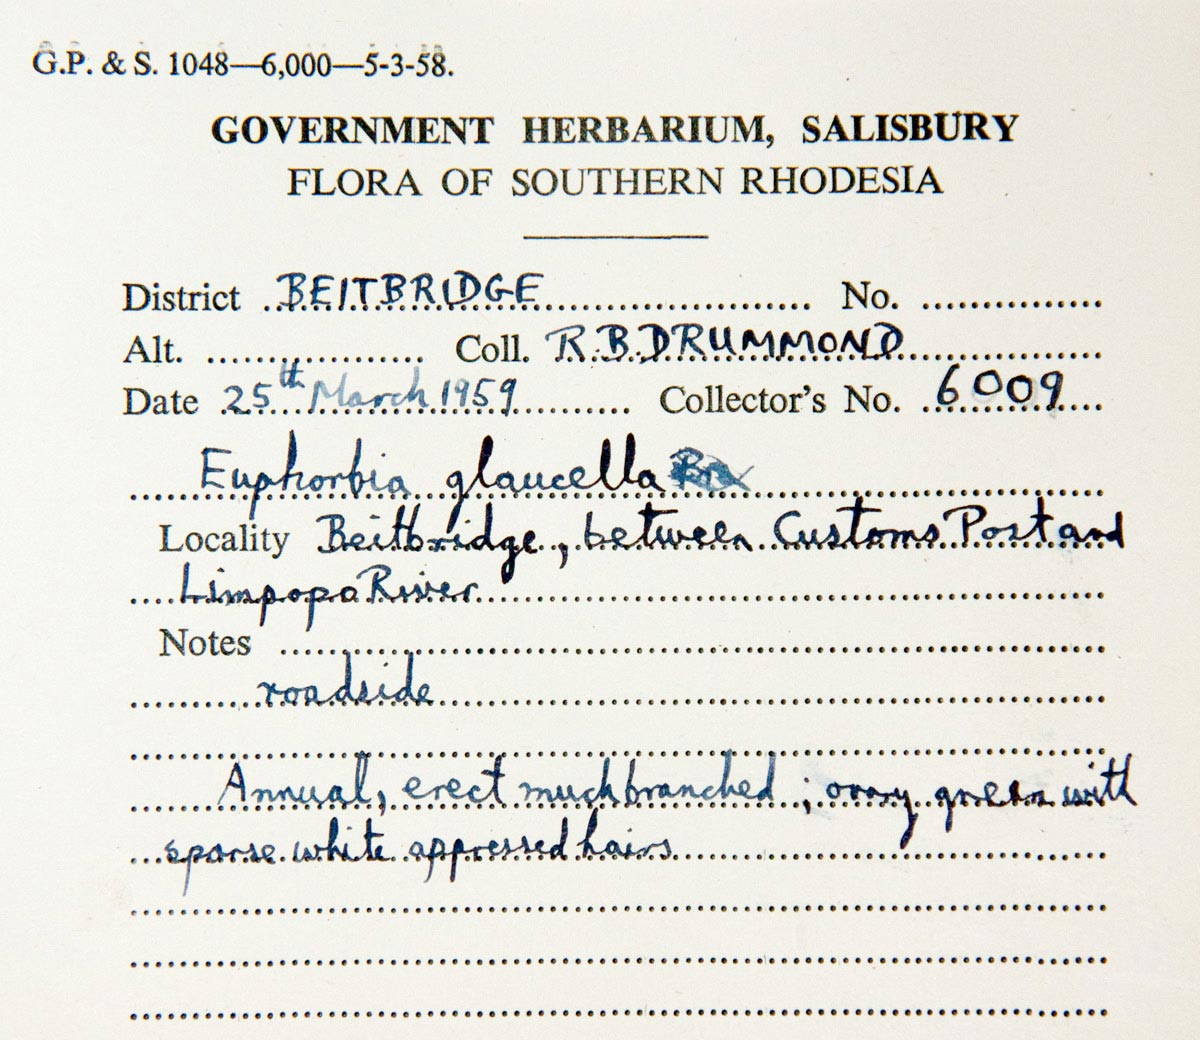 G.P. & S. 1048—6,000—5-3-58.
GOVERNMENT HERBARIUM, SALISBURY
FLORA OF SOUTHERN RHODESIA
District BEITBRIDGE No.
Alt. Coll. R.B.DRUMMOND
Date 25th March 1959 Collector's No. 6009
Euphorbia glaucella
Locality Beitbridge, between Customs Post and
Limpopo River
Notes
roadside
Annual, erect much branched; ovary green with
sparse white appressed hairs